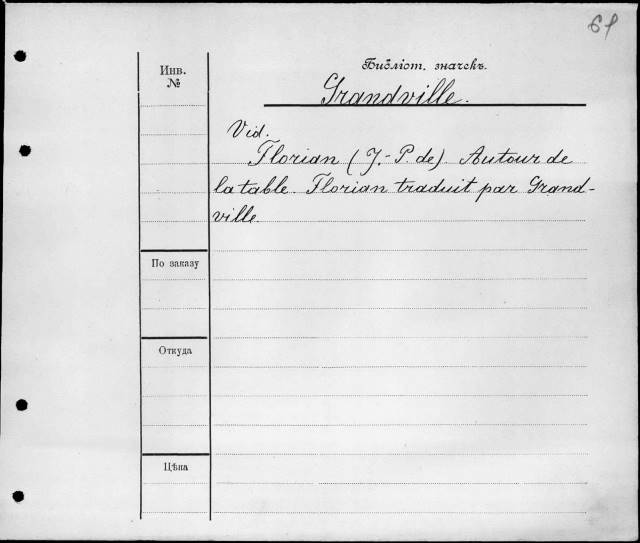 61
Инв.
№
Библіот. значекъ.
Grandville.
Vid.
Florian (J.-P. de) Autour de
la table. Florian traduit par Grand-
ville.
По заказу
Откуда
Цѣна